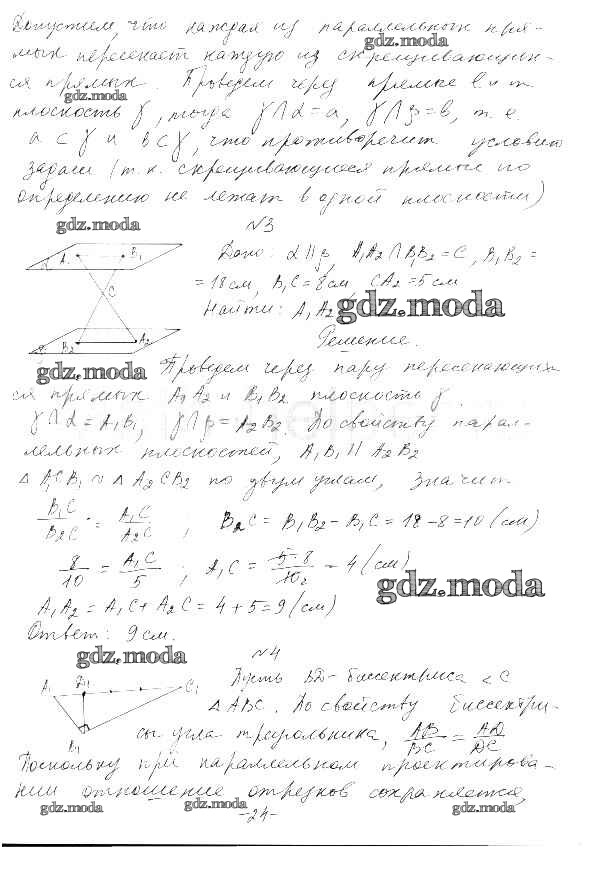 Допустим, что каждая из параллельных пря-
мых пересекает каждую из скрещивающих-
gdz.moda
ся прямых. Проведем через прямые l и m
gdz.moda
плоскость γ, тогда γ∩α=a, γ∩β=b, т. е.
a⊂γ и b⊂γ, что противоречит условию
задачи (т. к. скрещивающиеся прямые по
определению не лежат в одной плоскости)
gdz.moda
№3
A1 B1
α
C
B2 A2
β
Дано: α∥β, A1A2∩B1B2=C, B1B2=
=18см, B1C=8см, CA2=5см
Найти: A1A2
gdz.moda
Решение.
gdz.moda
Проведем через пару пересекающих-
ся прямых A1A2 и B1B2 плоскость γ
γ∩α=A1B1, γ∩β=A2B2. По свойству парал-
лельных плоскостей, A1B1∥A2B2
△A1CB1 ∾ △A2CB2 по двум углам, значит
B1C/B2C = A1C/A2C ; B2C = B1B2 – B1C = 18-8=10 (см)
8/10 = A1C/5 ; A1C = 5·8/10 = 4 (см)
gdz.moda
A1A2 = A1C + A2C = 4+5=9 (см)
Ответ: 9см.
gdz.moda
№4
A1 D1 C1
B1
Пусть BD- биссектриса <C
△ABC. По свойству биссектри-
сы угла треугольника, AB/BC = AD/DC
Поскольку при параллельном проектирова-
нии отношение отрезков сохраняется,
gdz.moda gdz.moda gdz.moda
-24-